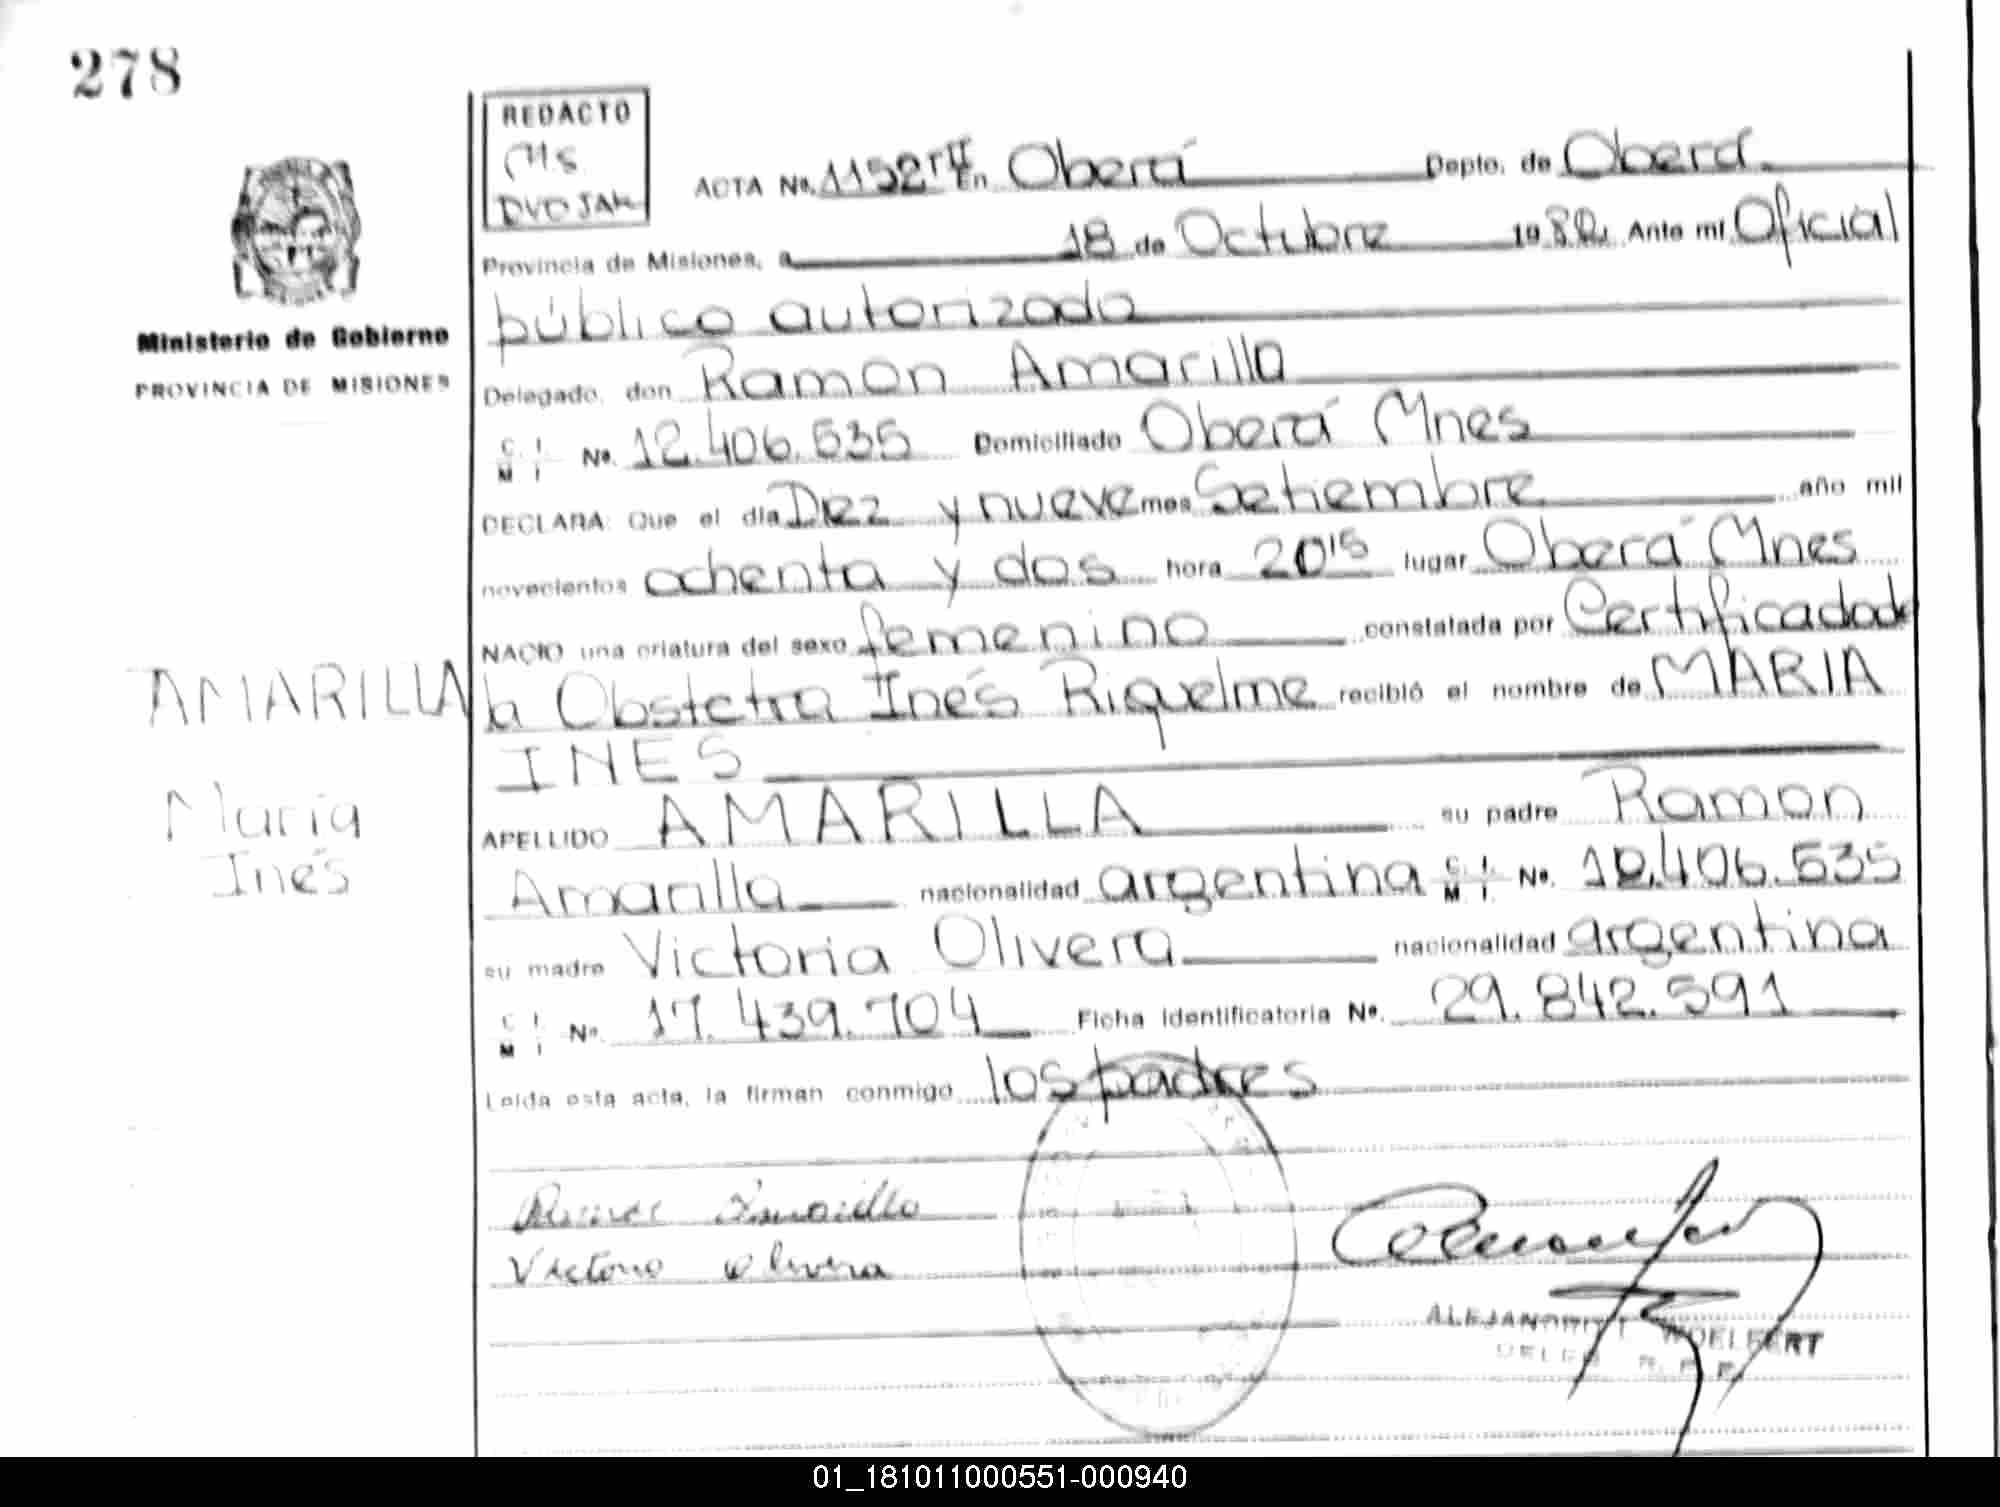 278
REDACTO
MS
ACTA No. 1152 TII En Oberá Depto. de Oberá
Provincia de Misiones, a 18 de Octubre 1982 Ante mí Oficial
público autorizado
Ministerio de Gobierno
PROVINCIA DE MISIONES
Delegado, don Ramon Amarilla
C. I.
M I No. 12.406.535 Domiciliado Oberá Mnes
DECLARA: Que el día Diez y nueve mes Setiembre año mil
novecientos ochenta y dos hora 20 15 lugar Oberá Mnes
NACIO una criatura del sexo femenino constatada por Certificado de
la Obstetra Inés Riquelme recibió el nombre de MARIA
INES
AMARILLA
María
Inés
APELLIDO AMARILLA su padre Ramon
Amarilla nacionalidad argentina C. I. M. I. No. 12.406.535
su madre Victoria Olivera nacionalidad argentina
C I
M I No. 17.439.704 Ficha identificatoria No. 29.842.591
Leída esta acta, la firman conmigo los padres
Amarillo
Victorio Olivera
WOELFERT
01_181011000551-000940